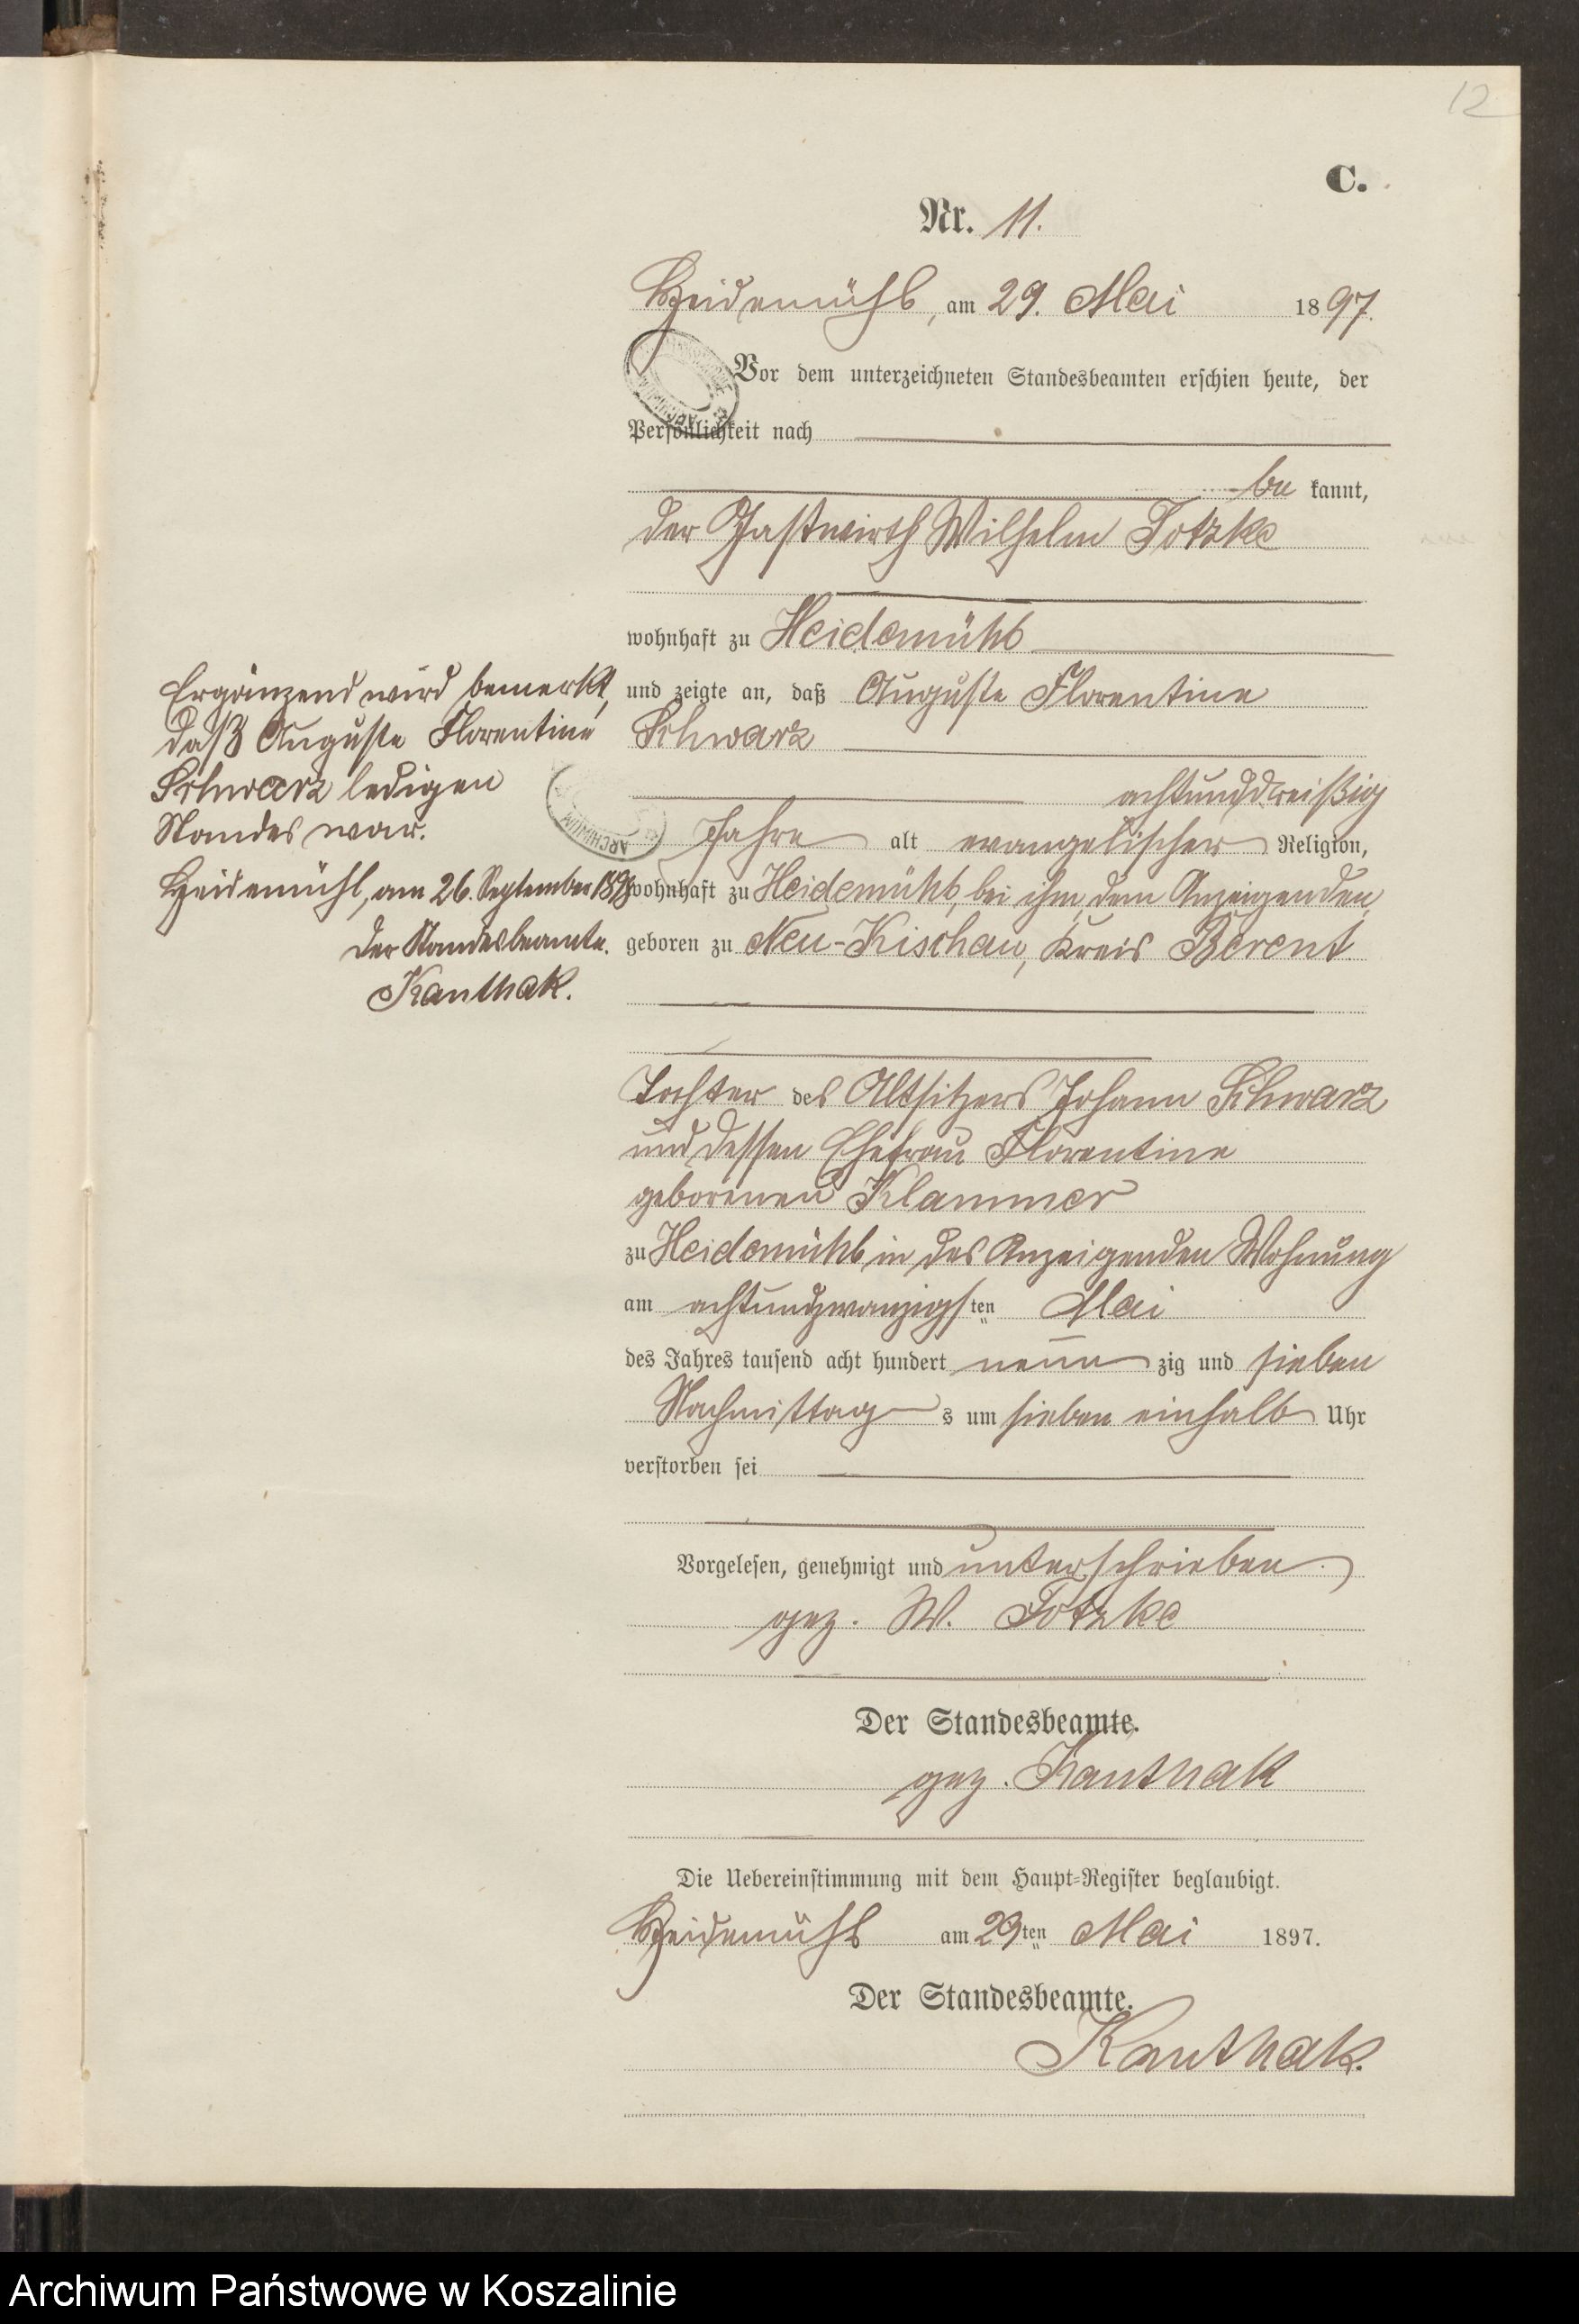 12
C.
Nr. 11.
Heidemühl, am 29. Mai 1897.
Vor dem unterzeichneten Standesbeamten erschien heute, der
Persönlichkeit nach
be kannt,
der Gastwirth Wilhelm Totzke
wohnhaft zu Heidemühl
und zeigte an, daß Auguste Florentine
Schwarz
achtunddreißig
Jahre alt evangelischer Religion,
wohnhaft zu Heidemühl, bei ihm, dem Anzeigenden,
geboren zu Neu-Kischau, Kreis Berent
Tochter des Altsitzers Johann Schwarz
und dessen Ehefrau Florentine
geborenen Klammer
zu Heidemühl in des Anzeigenden Wohnung
am achtundzwanzigsten Mai
des Jahres tausend acht hundert neun zig und sieben
Nachmittag s um sieben einhalb Uhr
verstorben sei
Vorgelesen, genehmigt und unterschrieben
gez. W. Totzke
Der Standesbeamte.
gez. Kanthak
Die Uebereinstimmung mit dem Haupt-Register beglaubigt.
Heidemühl am 29ten Mai 1897.
Der Standesbeamte.
Kanthak.
Ergänzend wird bemerkt,
daß Auguste Florentine
Schwarz ledigen
Standes war.
Heidemühl, am 26. September
Der Standesbeamte.
Kanthak.
ARCHIWUM
Archiwum Państwowe w Koszalinie